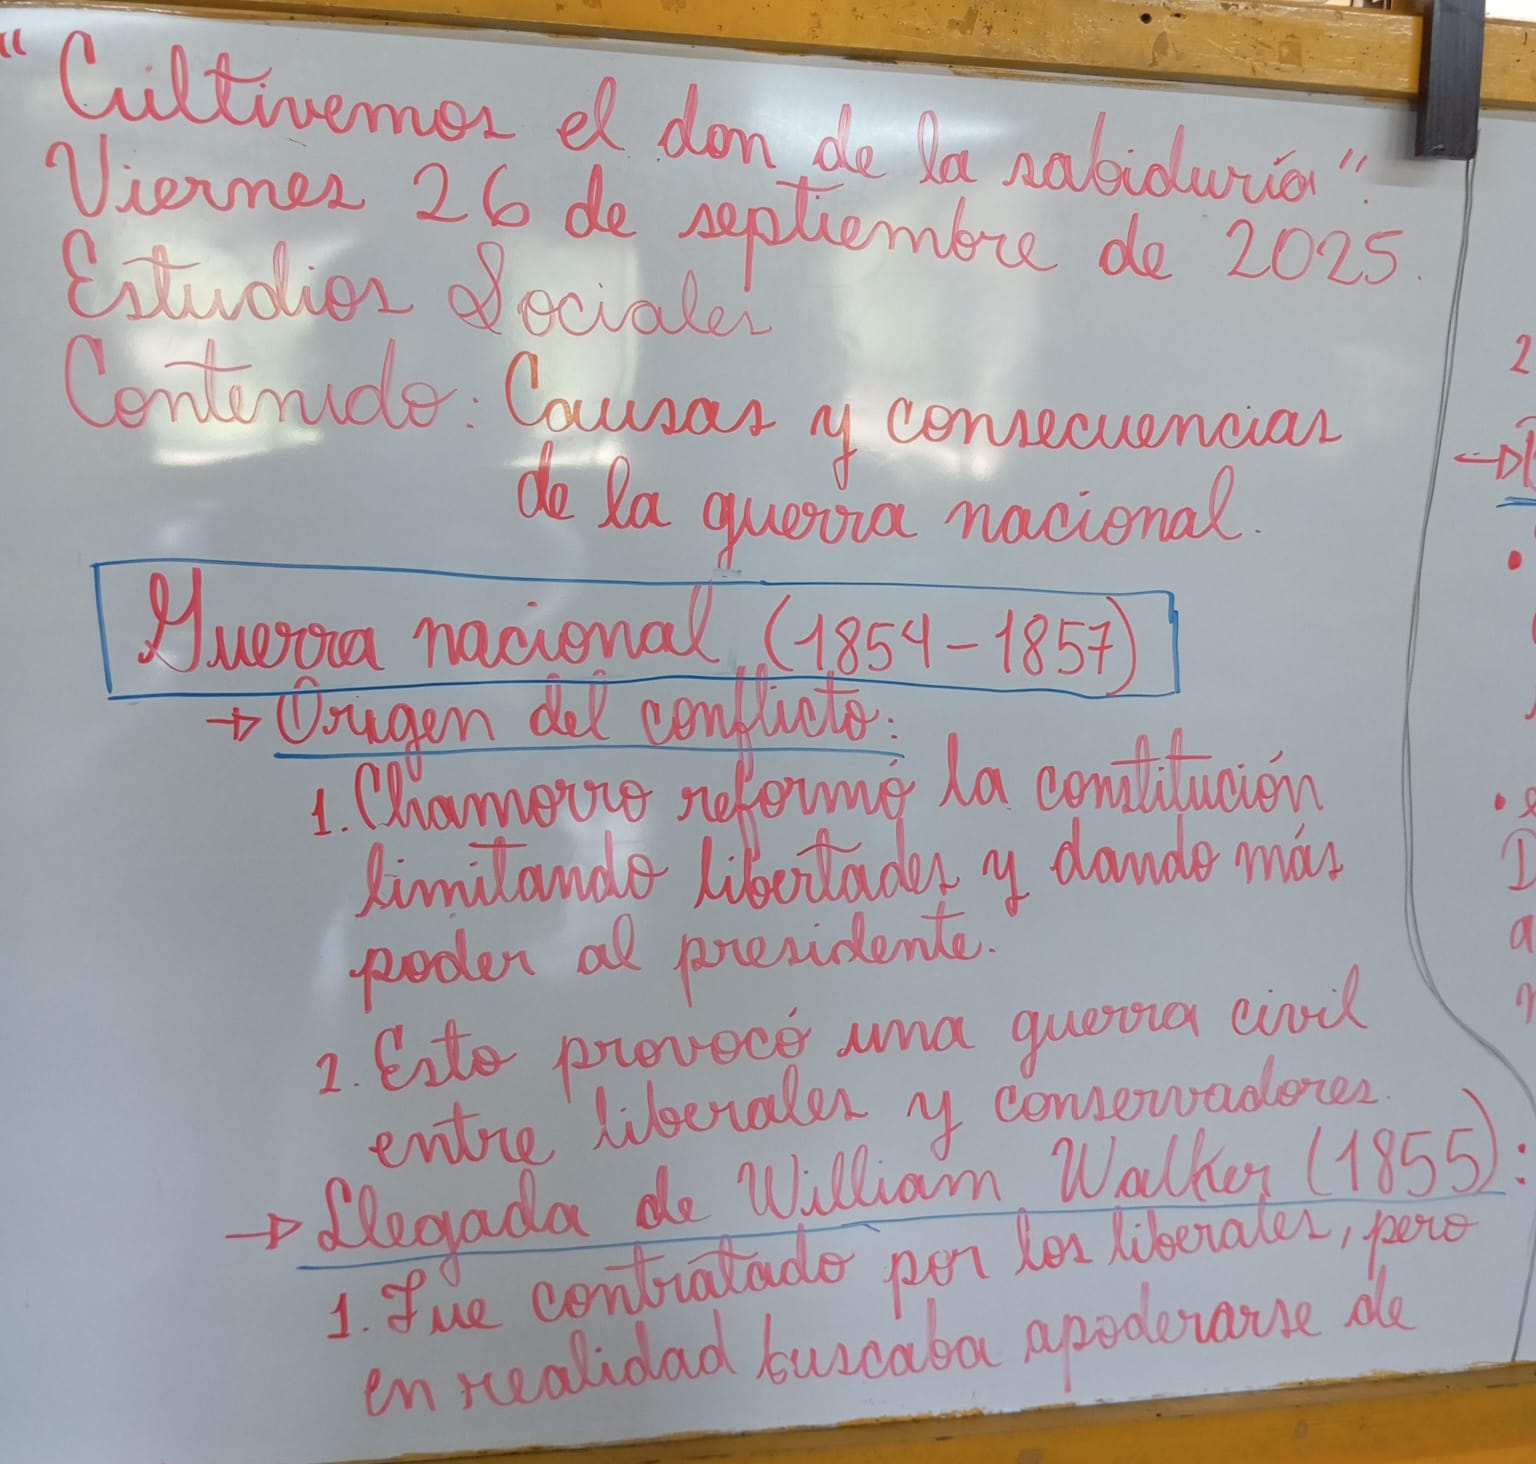 "Cultivemos el don de la sabiduría".
Viernes 26 de septiembre de 2025.
Estudios Sociales
Contenido: Causas y consecuencias
de la guerra nacional.
Guerra nacional (1854-1857)
→ Origen del conflicto:
1. Chamorro reformó la constitución
limitando libertades y dando más
poder al presidente.
2. Esto provocó una guerra civil
entre liberales y conservadores.
→ Llegada de William Walker (1855):
1. Fue contratado por los liberales, pero
en realidad buscaba apoderarse de